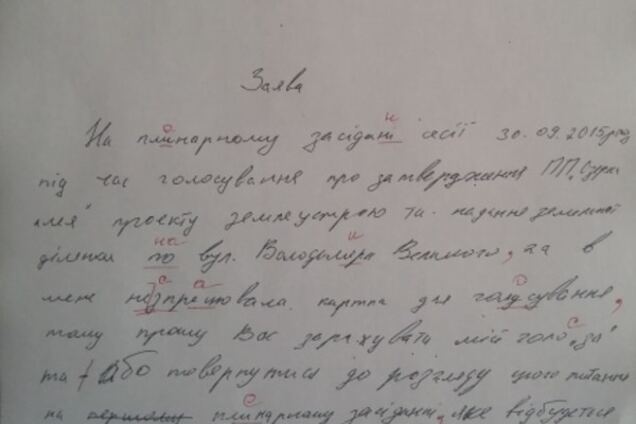 Заява
На плинарному засідані сесії 30.09.2015 року
під час голосування про затвердження ПП „
алея" проекту землеустрою та надання земельної
ділянки по вул. Володимира Великого, 22 в
мене незпрацювала картка для голусування,
тому прошу Вас зарахувати мій голо „за"
та / або повернутися до розгляду цього питання
на плинарному засіданні, яке відбудеться